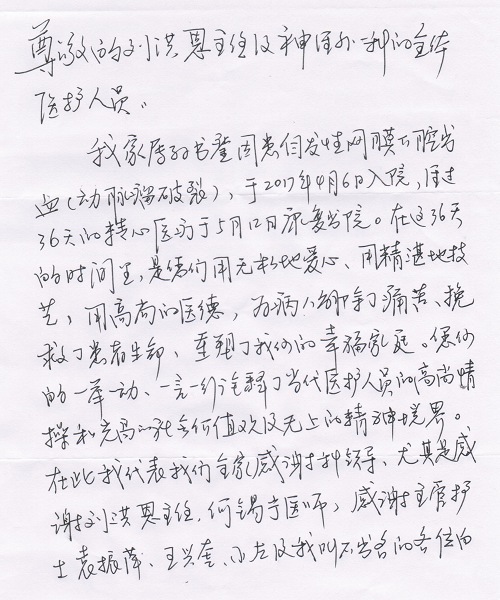 尊敬的刘洪恩主任及神经外科的全体
医护人员。
我家属 书登因患自发性网膜下腔出
血(动脉瘤破裂),于2017年4月6日入院,经过
36天的精心医疗于5月12日康复出院。在这36天
的时间里,是您们用无私地爱心、用精湛地技
艺,用高尚的医德,为病人解除了痛苦、挽
救了患者生命,重塑了我们的幸福家庭。您们
的一举一动、一言一行诠释了当代医护人员的高尚情
操和崇高的社会价值观及无上的精神境界。
在此我代表我们全家感谢 科领导、尤其是感
谢刘洪恩主任,何锡 医师,感谢主管护
士袁振萍、王兴奎、小左及我叫不出名的各位白